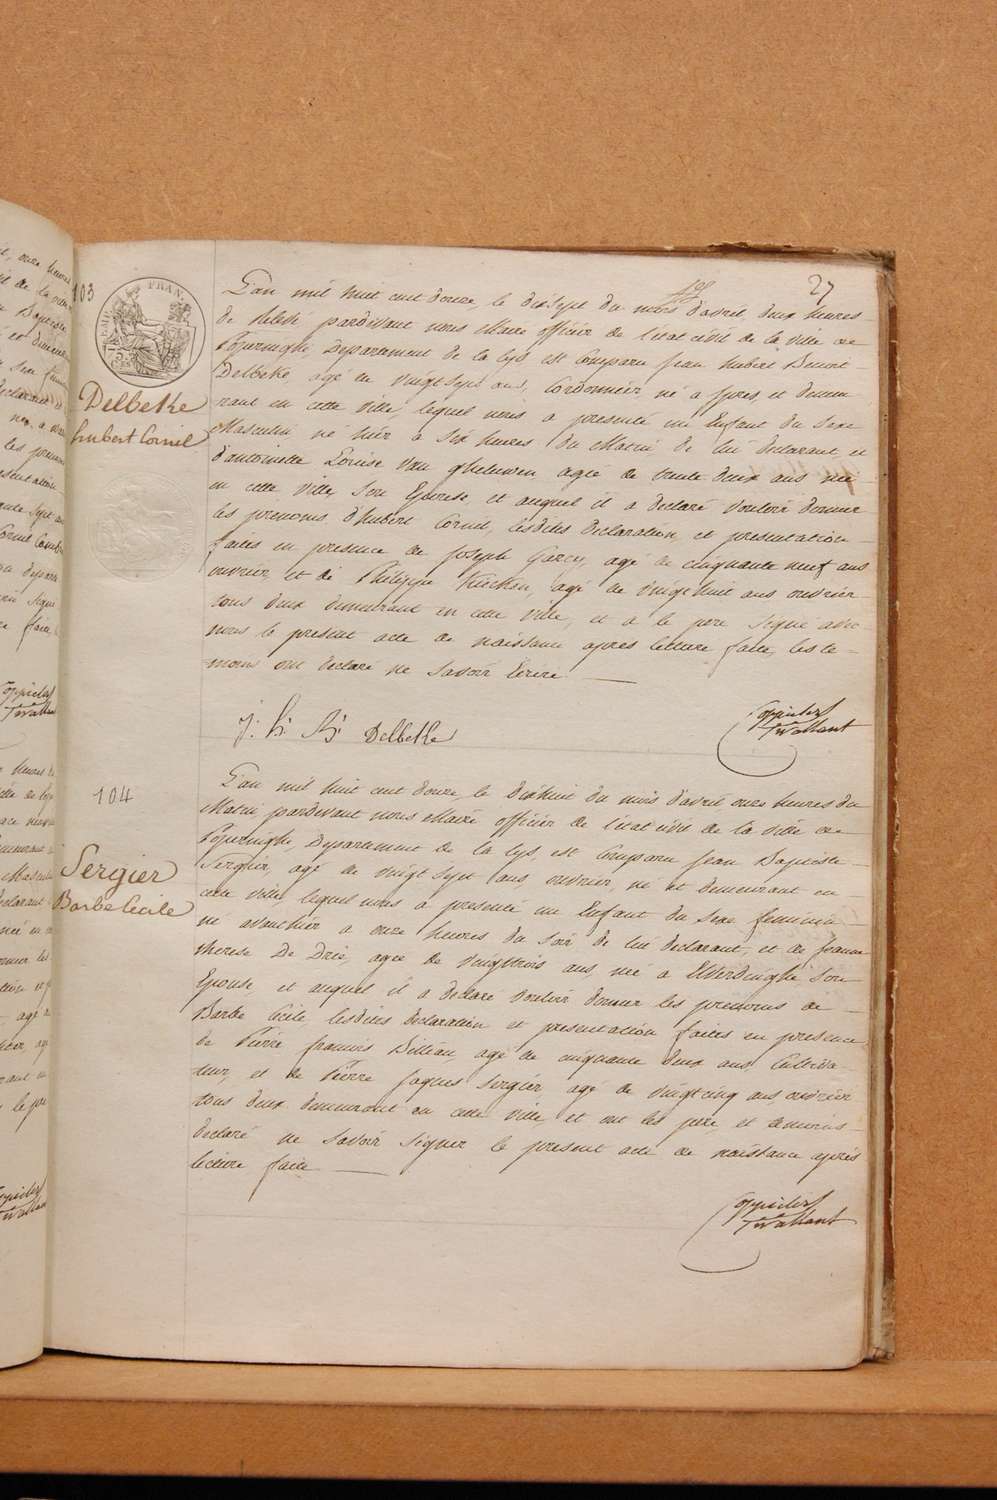 27
103
Delbeke
hubert Cornil
L'an mil huit cent douze, le dixsept du mois d'avril deux heures
de Relevé pardevant nous Maire officier de l'etat civil de la ville de
Poperinghe, Departement de la Lys, est Comparu Jean Hubert Benoit
Delbeke agé de vingt sept ans, Cordonnier né a Ypres, et demeu
rant en cette ville, lequel nous a presenté un Enfant du Sexe
Masculin né hier a Six heures du Matin de lui declarant et
d'antoinette Louise Van Gheluwen, agée de trente deux ans née
en cette ville, Son Epouse, et auquel il a declaré vouloir donner
les prenoms d'hubert Cornil, lesdites declaration, et presentation
faites en presence de Joseph Garcy, agé de cinquante neuf ans
ouvrier, et de Philippe agé de vingt huit ans ouvrier
tous deux demeurant en cette ville, et a le pere Signé avec
nous le present acte de naissance apres lecture faite, les te-
-moins ont declaré ne Savoir Ecrire
j: h: B: Delbeke
104
Sergier
Barbe Cecile
L'an mil huit cent douze, le dixhuit du mois d'avril onze heures du
Matin pardevant nous Maire officier de l'etat civil de la ville de
Poperinghe, Departement de la Lys, est Comparu Jean Baptiste
Sergier, agé de vingt sept ans ouvrier, né et demeurant en
cette ville lequel nous a presenté un Enfant du Sexe feminin
né avant hier a onze heures du Soir de lui declarant, et de Jeanne
therese De Drie, agée de vingttrois ans, née a Elverdinghe Son
Epouse, et auquel il a declaré vouloir donner les prenoms de
Barbe Cecile lesdites declaration et presentation faites en presence
de Pierre francois Billiau agé de cinquante deux ans, Cultiva
teur, et de Pierre Jaques Sergier agé de vingtcinq ans ouvrier
tous deux demeurant en cette ville et ont les père, et temoins
declaré ne Savoir Signer le present acte de naissance après
lecture faite